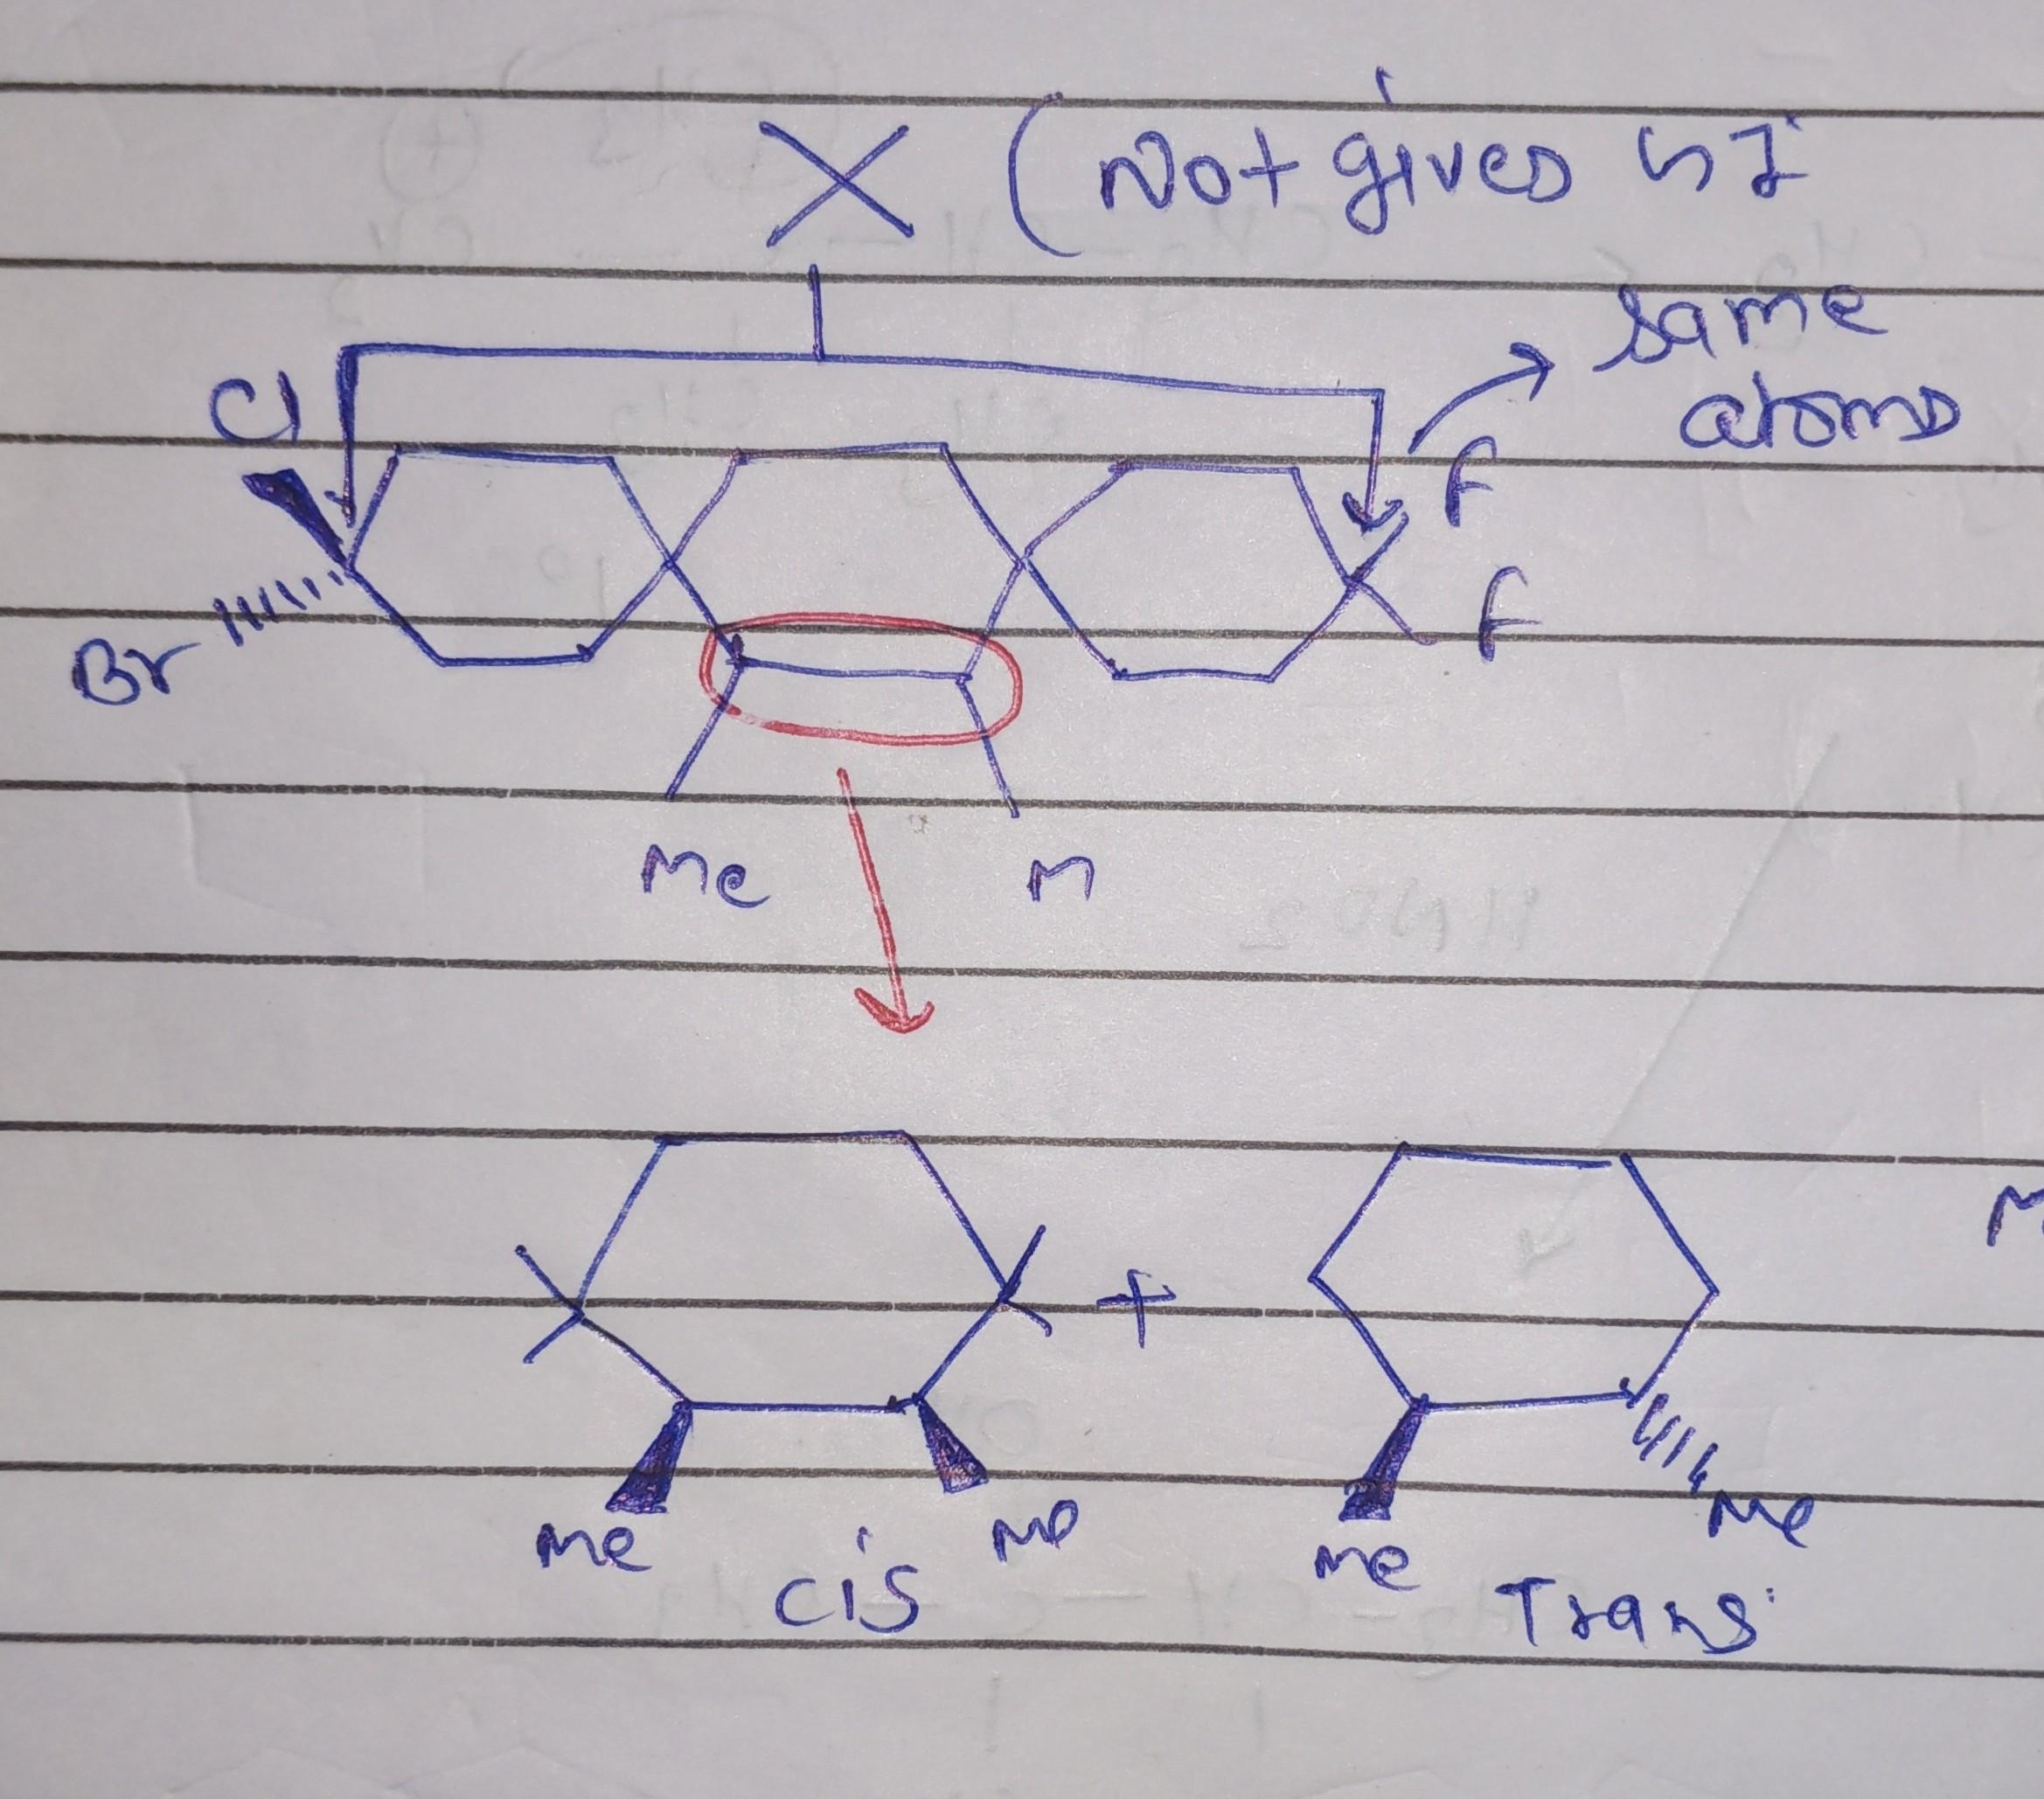 X (Not gives GI
same
atoms
Cl
F
Br
F
Me M
+
Me Me Me Me
cis Trans
M